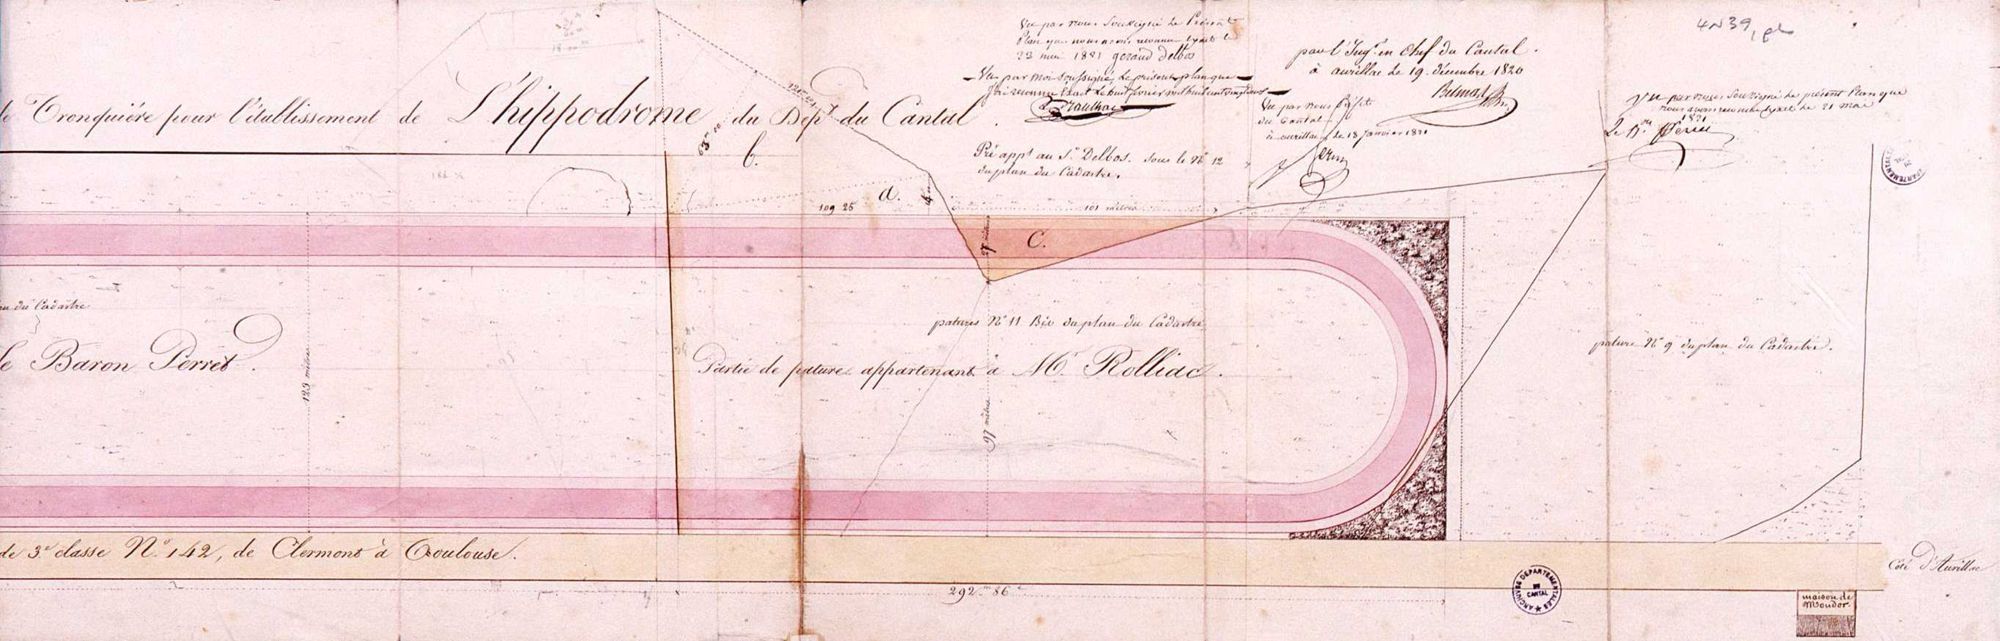 4N39
Vu par nous soussigné le Présent
Plan que nous avons reconnu exact le
22 mai 1821 geraud delbos
Vu par moi soussigné le présent plan que
par l'Ingr. en Chef du Cantal.
à aurillac le 19. décembre 1820
Vu par nous Préfet
du Cantal
à aurillac, le 18 janvier 1821
Vu par nous soussigné le présent Plan que
nous avons reconnu exact le 21 mai
1821
Le Bon Perret
de Tronquiére pour l'établissement de L'hippodrome du Dépt. du Cantal.
Pré appt. au Sr. Delbos. sous le No. 12
du plan du Cadastre.
63 m
b.
a.
4 m
109 25
101 mètres
C.
27 mètres
ARCHIVES DEPARTEMENTALES DU CANTAL
du Cadastre
patures No. 11 Bis du plan du Cadastre
pature No. 9 du plan du Cadastre.
le Baron Perret.
123 mètres
Partie de pature appartenant à Mr. Rolliac.
97 mètres
de 3e. classe No. 142, de Clermont à Toulouse.
Côté d'Aurillac
292 m 86 c
ARCHIVES DEPARTEMENTALES DU CANTAL
maison de
Moudor